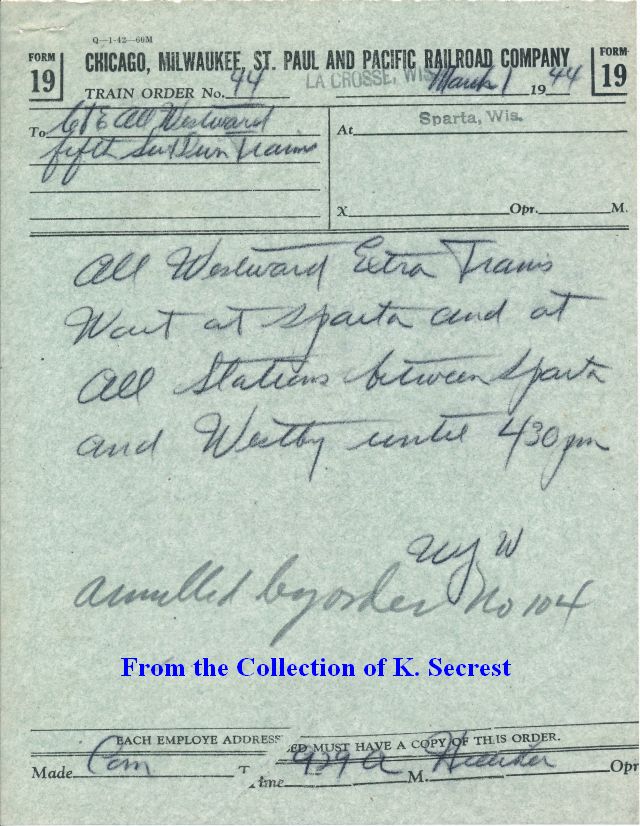 Q—1-42—60M
FORM 19
CHICAGO, MILWAUKEE, ST. PAUL AND PACIFIC RAILROAD COMPANY
FORM 19
TRAIN ORDER No. 44 LA CROSSE, WIS March 1 1944
To C&E All Westward
fifth Sub Divn Trains
At Sparta, Wis.
X Opr. M.
All Westward Extra Trains
Wait at Sparta and at
All Stations between Sparta
and Westby until 430 pm
W
annulled by order No 104
From the Collection of K. Secrest
EACH EMPLOYE ADDRESSED MUST HAVE A COPY OF THIS ORDER.
Made Com Time 929 A M. Opr